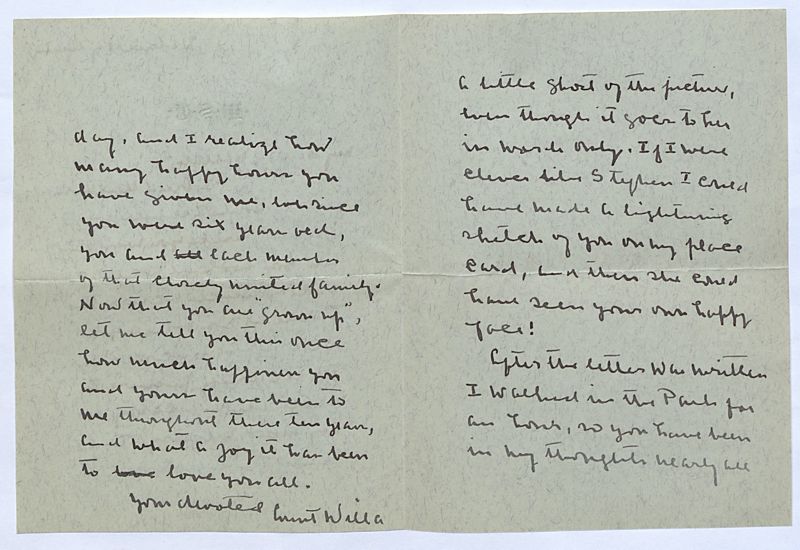 day, and I realize how
many happy hours you
have given me, ever since
you were six years old,
you and all each member
of that closely united family.
Now that you are "grown up",
let me tell you this once
how much happiness you
and yours have been to
me throughout these ten years,
and what a joy it has been
to love you all.
Your devoted Aunt Willa
a little ghost of the picture,
even though it goes to her
in words only. If I were
clever like Stephen I could
have made a lightning
sketch of you on my place
card, and then she could
have seen your own happy
face!
After the letter was written
I walked in the Park for
an hour, so you have been
in my thoughts nearly all